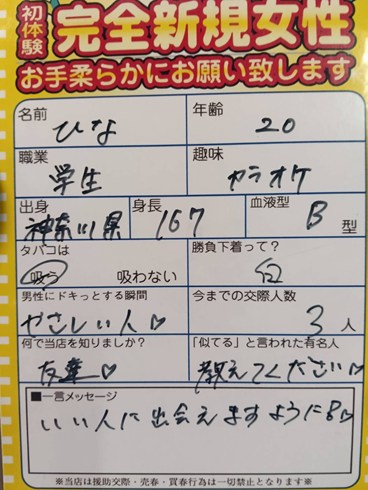 初体験
完全新規女性
お手柔らかにお願い致します
名前 ひな 年齢 20
職業 学生 趣味 カラオケ
出身 神奈川県 身長 167 血液型 B 型
タバコは 吸う 吸わない 勝負下着って? 白
男性にドキっとする瞬間 やさしい人♡ 今までの交際人数 3 人
何で当店を知りましたか? 友達♡ 「似てる」と言われた有名人 教えてください♡
■一言メッセージ
いい人に出会えますように
※当店は援助交際・売春・買春行為は一切禁止となります※